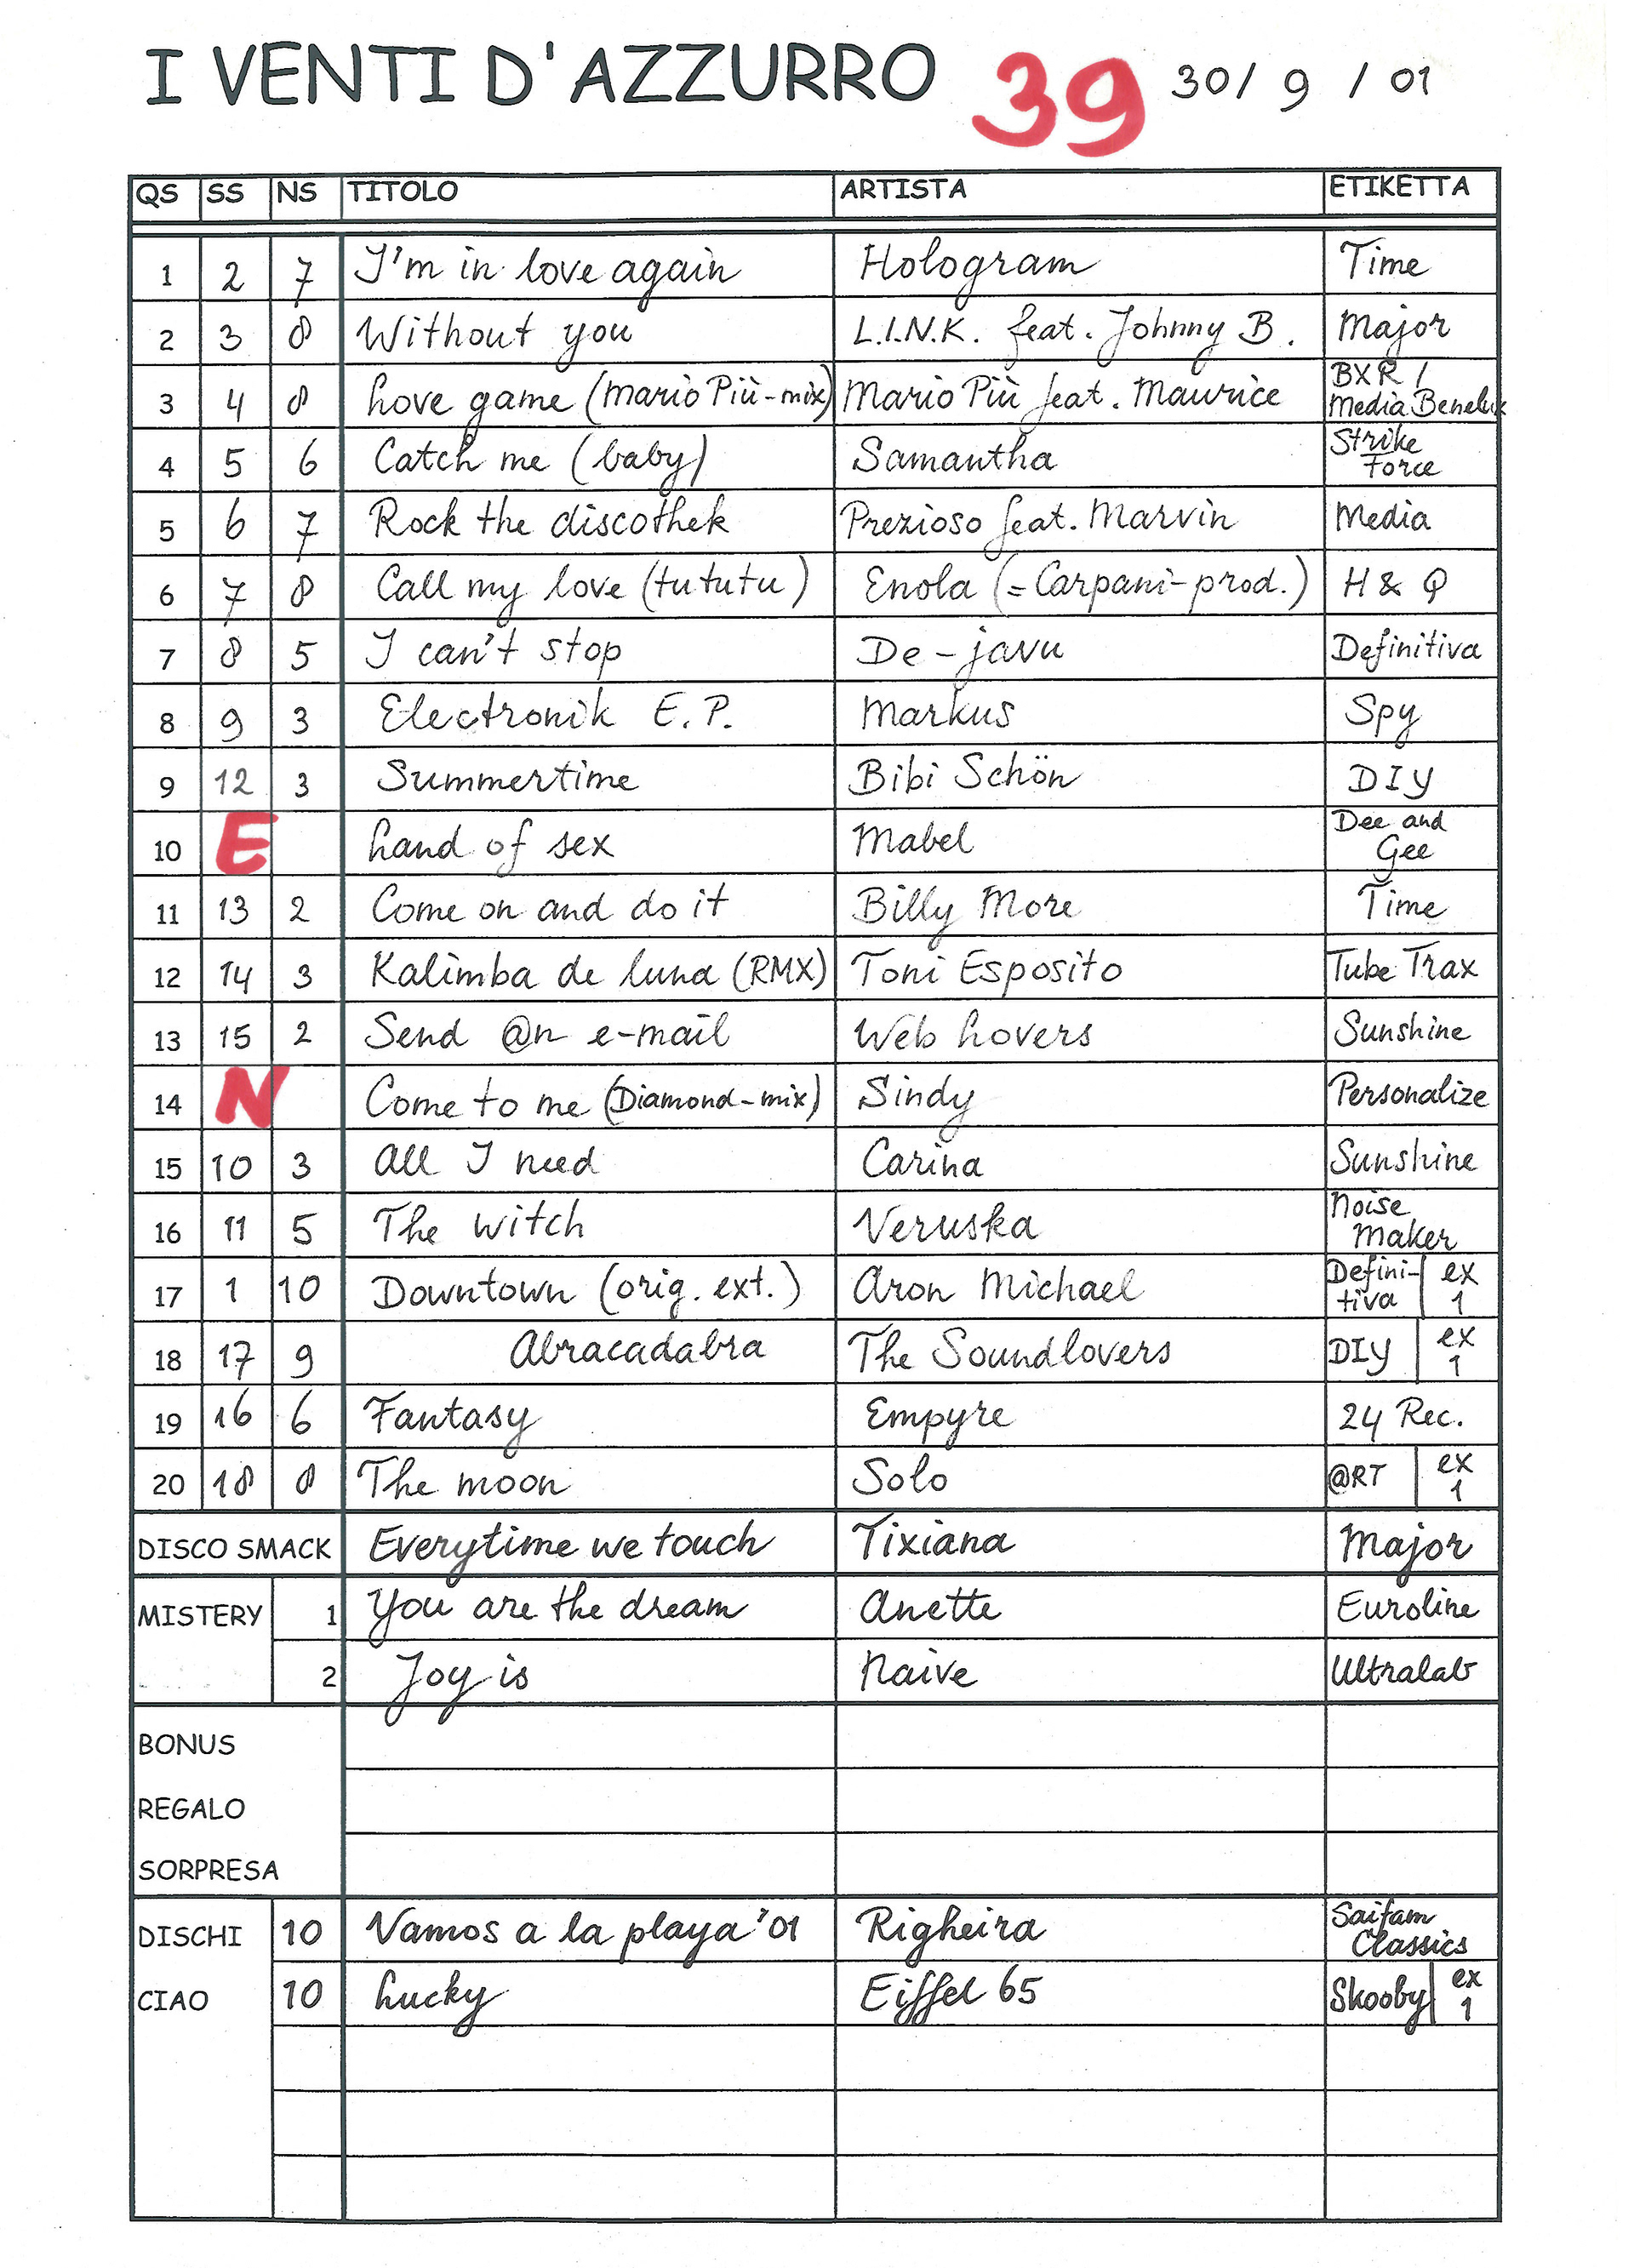 I VENTI D'AZZURRO 39 30/ 9 / 01
QS SS NS TITOLO ARTISTA ETIKETTA
1 2 7 I'm in love again Hologram Time
2 3 8 Without you L.I.N.K. feat. Johnny B. Major
3 4 8 Love game (Mario Più-mix) Mario Più feat. Maurice BXR / Media Benelux
4 5 6 Catch me (baby) Samantha Strike Force
5 6 7 Rock the discothek Prezioso feat. Marvin Media
6 7 8 Call my love (tututu) Enola (=Carpani-prod.) H & Q
7 8 5 I can't stop De-javu Definitiva
8 9 3 Electronik E.P. Markus Spy
9 12 3 Summertime Bibi Schön DIY
10 E Land of sex Mabel Dee and Gee
11 13 2 Come on and do it Billy More Time
12 14 3 Kalimba de luna (RMX) Toni Esposito Tube Trax
13 15 2 Send @n e-mail Web Lovers Sunshine
14 N Come to me (Diamond-mix) Sindy Personalize
15 10 3 All I need Carina Sunshine
16 11 5 The witch Veruska Noise Maker
17 1 10 Downtown (orig. ext.) Aron Michael Defini-tiva ex 1
18 17 9 Abracadabra The Soundlovers DIY ex 1
19 16 6 Fantasy Empyre 24 Rec.
20 18 8 The moon Solo @RT ex 1
DISCO SMACK Everytime we touch Tixiana Major
MISTERY 1 You are the dream Anette Euroline
2 Joy is Naive Ultralab
BONUS
REGALO
SORPRESA
DISCHI 10 Vamos a la playa '01 Righeira Saifam Classics
CIAO 10 Lucky Eiffel 65 Skooby ex 1